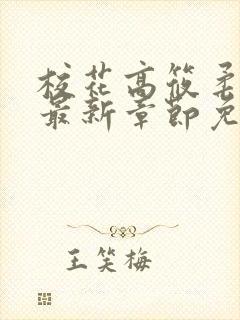 校花高筱柔
最新章节免
王笑梅